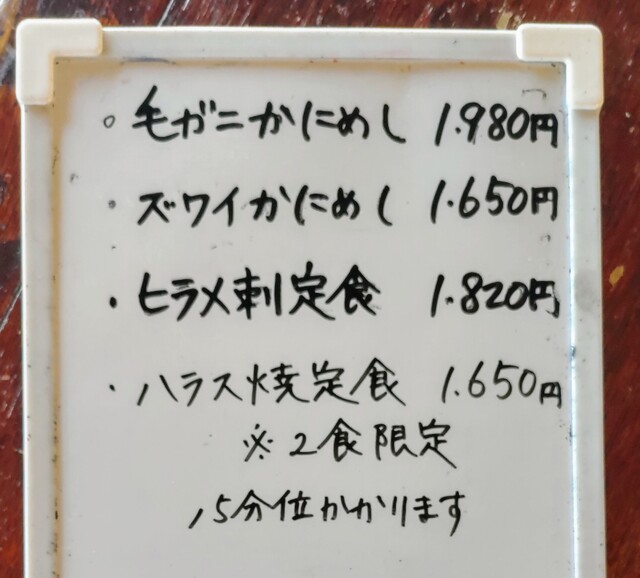 。毛ガニかにめし 1.980円
・ズワイかにめし 1.650円
・ヒラメ刺定食 1.820円
・ハラス焼定食 1.650円
※2食限定
15分位かかります